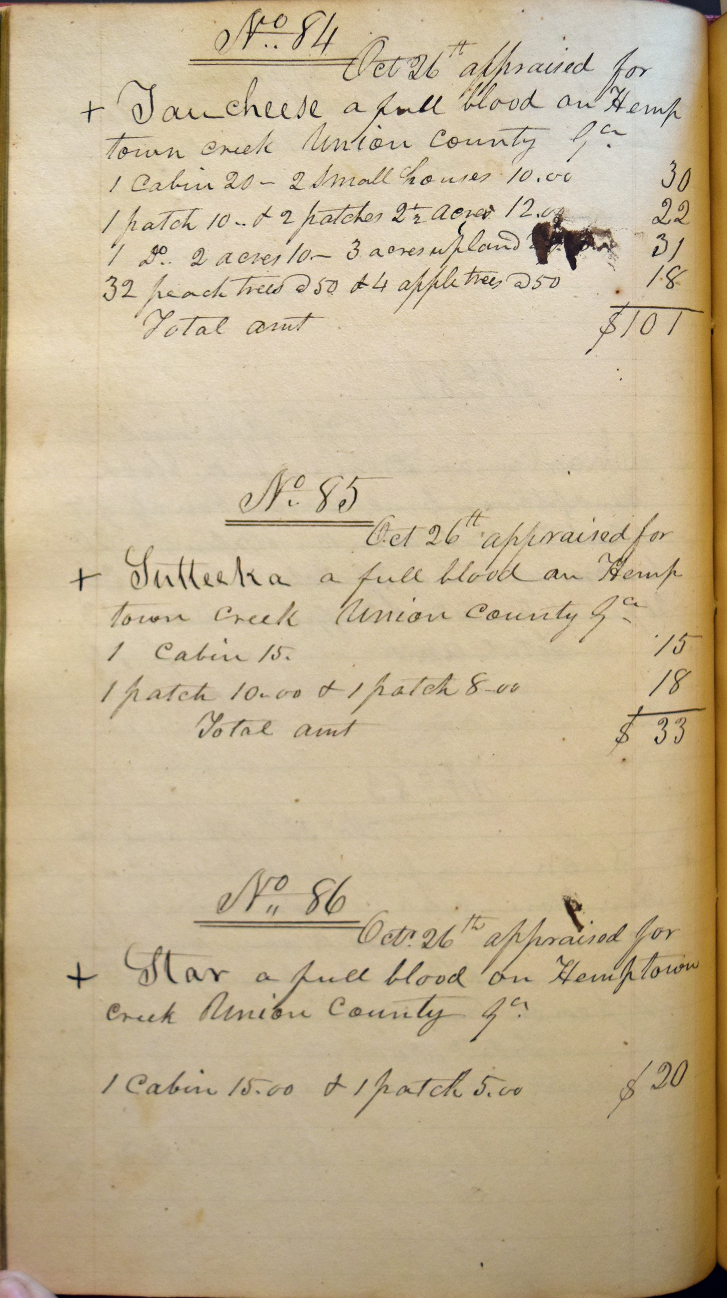 No. 84
Oct 26th appraised for
+ Taucheese a full blood on Hemp
town creek Union County Ga
1 Cabin 20 - 2 Small houses 10.00 30
1 patch 10 - & 2 patches 2½ acres 12.00 22
1 Do. 2 acres 10 - 3 acres upland 31
32 peach trees @50 & 4 apple trees @50 18
Total amt $101
No. 85
Oct 26th appraised for
+ Sutteeka a full blood on Hemp
town Creek Union County Ga
1 Cabin 15. 15
1 patch 10.00 & 1 patch 8-00 18
Total amt $ 33
No. 86
Oct. 26th appraised for
+ Star a full blood on Hemptown
Creek Union County Ga.
1 Cabin 15.00 & 1 patch 5.00 $ 20